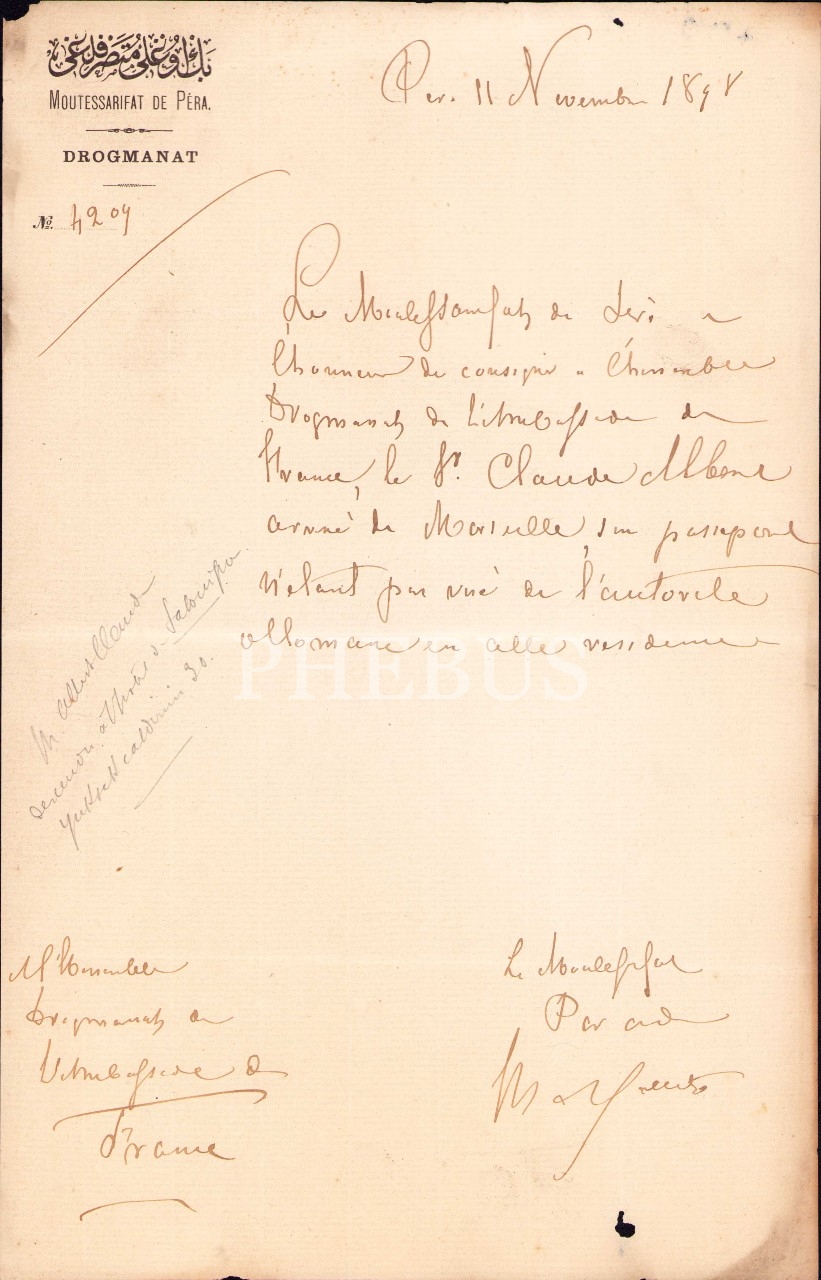 بك اوغلى متصرفلغى
MOUTESSARIFAT DE PÉRA.
DROGMANAT
No. 4209
Per. 11 Novembre 1898
Le Moutessarifat de Péra a
l'honneur de consigner a l'honorable
Drogmanat de l'Ambassade de
France, le Sr. Claude Albert
arrivé de Marseille, son passeport
n'étant pas visé de l'autorité
ottomane en cette residence
M. Albert Claude
descendu à l'hotel d
yuksek calderim 30.
A l'honorable
Drogmanat de
l'Ambassade de
France
Le Moutessarif
Par ordre
PHEBUS